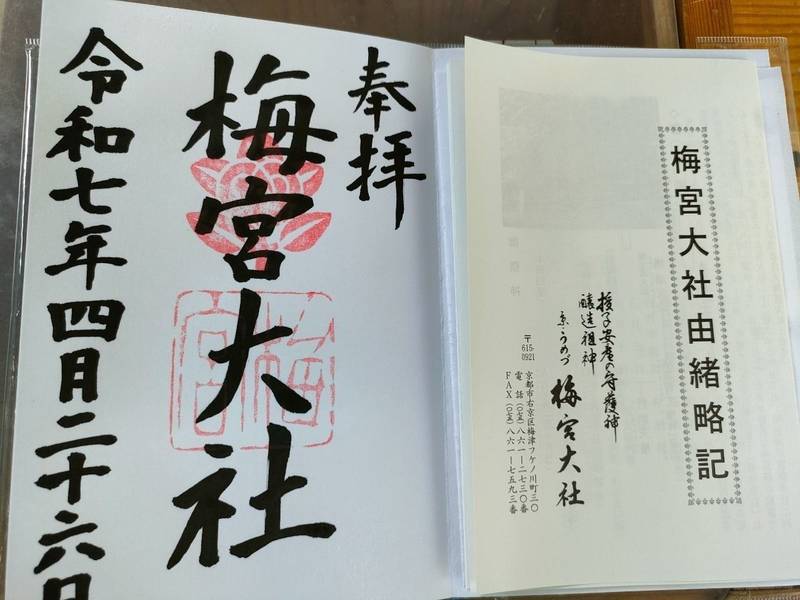 奉拝
梅宮大社
梅宮
令和七年四月二十六日
梅宮大社由緒略記
授子安産の守護神
醸造祖神
京・うめづ 梅宮大社
〒615-0921 京都市右京区梅津フケノ川町三〇
電話(〇七五)八六一-二七三〇番
FAX(〇七五)八六一-七五九三番